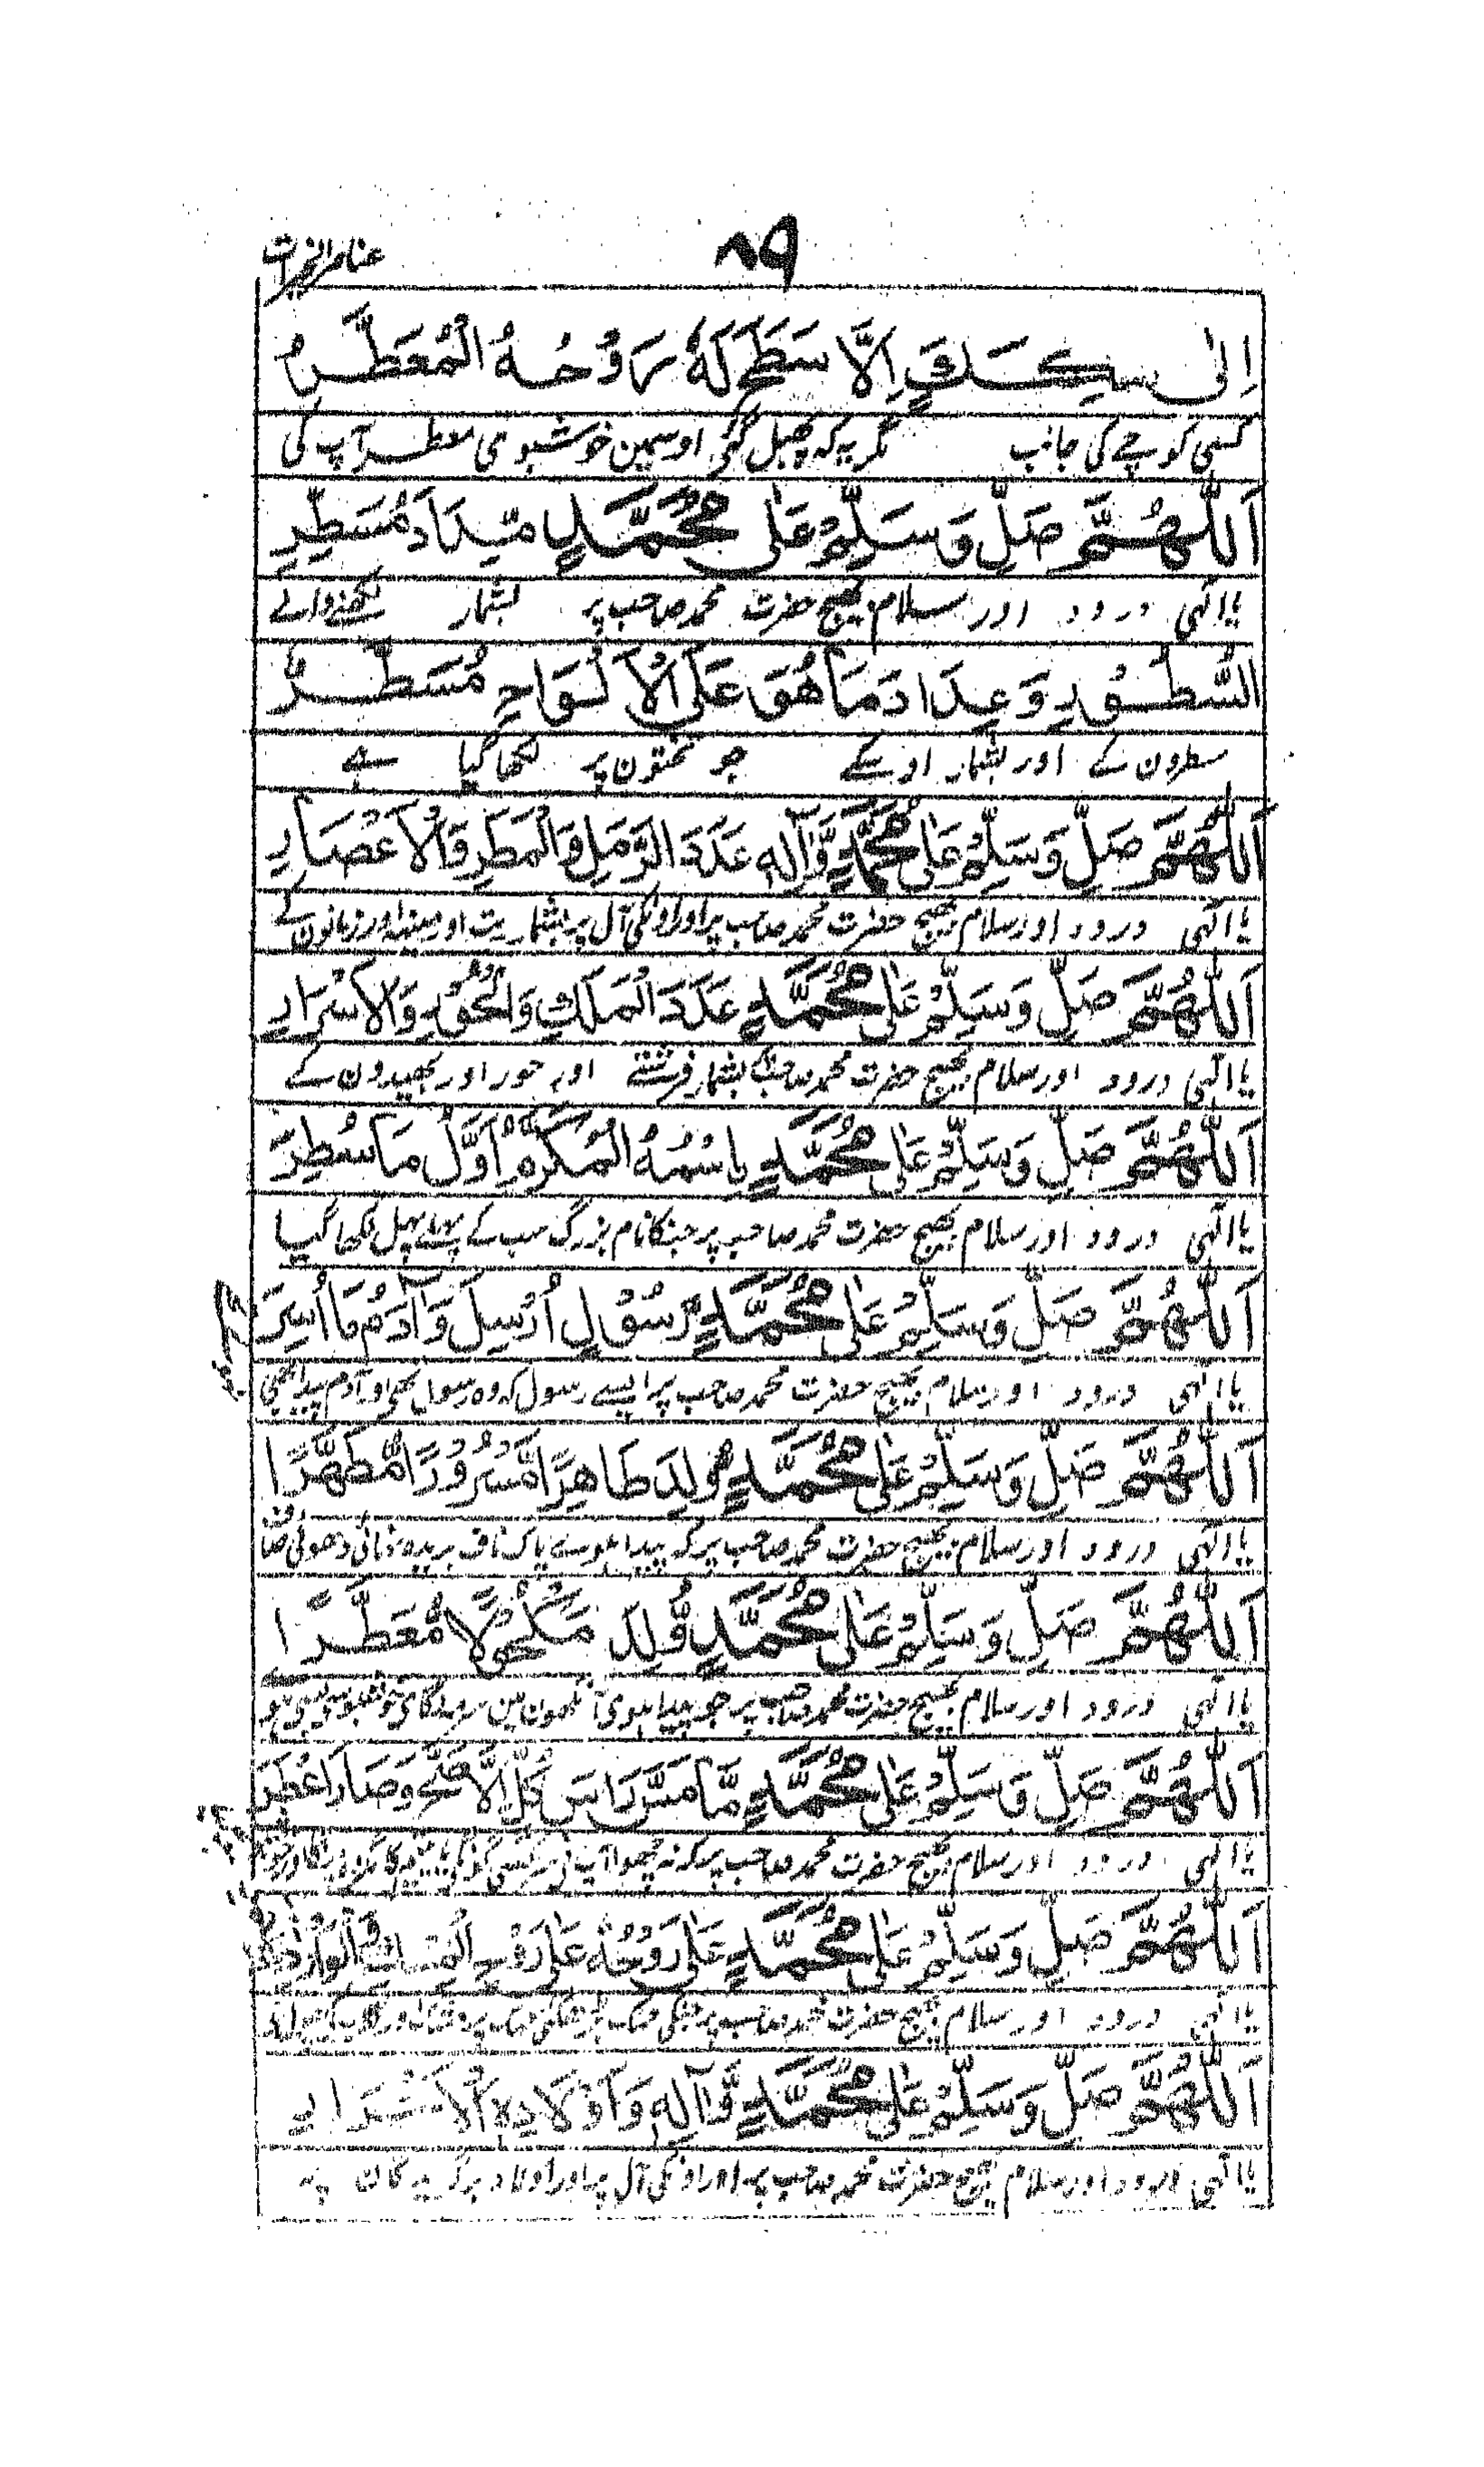 ٨٩
عناصر الخیرات
اِلٰی سِکَكٍ اِلَّا سَطَحَ لَهٗ رَوْحُهُ الْمُعَطَّرُ
کسی کوچے کی جانب مگر یہ کہ پھیل گئی اوسمین خوشبوی معطر آپ کی
اَللّٰهُمَّ صَلِّ وَسَلِّمْ عَلٰی مُحَمَّدٍ مِدَادَ مُسَطِّرِ
یا الٰہی درود اور سلام بھیج حضرت محمد صاحب پر بشمار لکھنے والے
السُّطُوْرِ وَعِدَادَ مَا هُوَ عَلَی الْاَلْوَاحِ مُسَطَّرٌ
سطرون کے اور بشمار اوسکے جو تختون پر لکھا گیا ہے
اَللّٰهُمَّ صَلِّ وَسَلِّمْ عَلٰی مُحَمَّدٍ وَّاٰلِهٖ عَدَدَ الرَّمْلِ وَالْمَطَرِ وَالْاَعْصَارِ
یا الٰہی درود اور سلام بھیج حضرت محمد صاحب پر اور اونکی آل پر بشمار ریت اور مینہ اور زمانون کے
اَللّٰهُمَّ صَلِّ وَسَلِّمْ عَلٰی مُحَمَّدٍ عَدَدَ الْمَلَكِ وَالْحُوْرِ وَالْاَسْرَارِ
یا الٰہی درود اور سلام بھیج حضرت محمد صاحب بشمار فرشتے اور حور اور بھیدون کے
اَللّٰهُمَّ صَلِّ وَسَلِّمْ عَلٰی مُحَمَّدٍ بِاسْمُهُ الْمُكَرَّمُ اَوَّلُ مَا سُطِرَ
یا الٰہی درود اور سلام بھیج حضرت محمد صاحب پر جنکا نام بزرگ سب کے پہلے پہل لکھا گیا
اَللّٰهُمَّ صَلِّ وَسَلِّمْ عَلٰی مُحَمَّدٍ رَّسُوْلٍ اُرْسِلَ وَاٰدَمُ مَا اُسِرَ
یا الٰہی درود اور سلام بھیج حضرت محمد صاحب پر ایسے رسول کہ وہ رسول تھے اور آدم پیدا
اَللّٰهُمَّ صَلِّ وَسَلِّمْ عَلٰی مُحَمَّدٍ وُّلِدَ طَاهِرًا مَّسْرُوْرًا مُّطَهَّرًا
یا الٰہی درود اور سلام بھیج حضرت محمد صاحب پر کہ پیدا ہوے پاک ناف بریدہ دھوئی
اَللّٰهُمَّ صَلِّ وَسَلِّمْ عَلٰی مُحَمَّدٍ وُّلِدَ مَكْحُوْلًا مُّعَطَّرًا
یا الٰہی درود اور سلام بھیج حضرت محمد صاحب پر جو پیدا ہوی آنکھون مین سرمہ
اَللّٰهُمَّ صَلِّ وَسَلِّمْ عَلٰی مُحَمَّدٍ مَّا مَسَّ رَاسَ كُلٍّ اِلَّا وَصَارَ اَعْطَرَ
یا الٰہی درود اور سلام بھیج حضرت محمد صاحب پر کہ نہ چھوا آپ نی سر کسی
اَللّٰهُمَّ صَلِّ وَسَلِّمْ عَلٰی مُحَمَّدٍ عَلٰی رَوْحُهٗ عَلٰی رَوْحِ
یا الٰہی درود اور سلام بھیج حضرت محمد صاحب پر جنکی
اَللّٰهُمَّ صَلِّ وَسَلِّمْ عَلٰی مُحَمَّدٍ وَّاٰلِهٖ وَاَوْلَادِهِ
یا الٰہی درود اور سلام بھیج حضرت محمد صاحب پر اور اونکی آل پر اور اولاد برگزیدگان پر